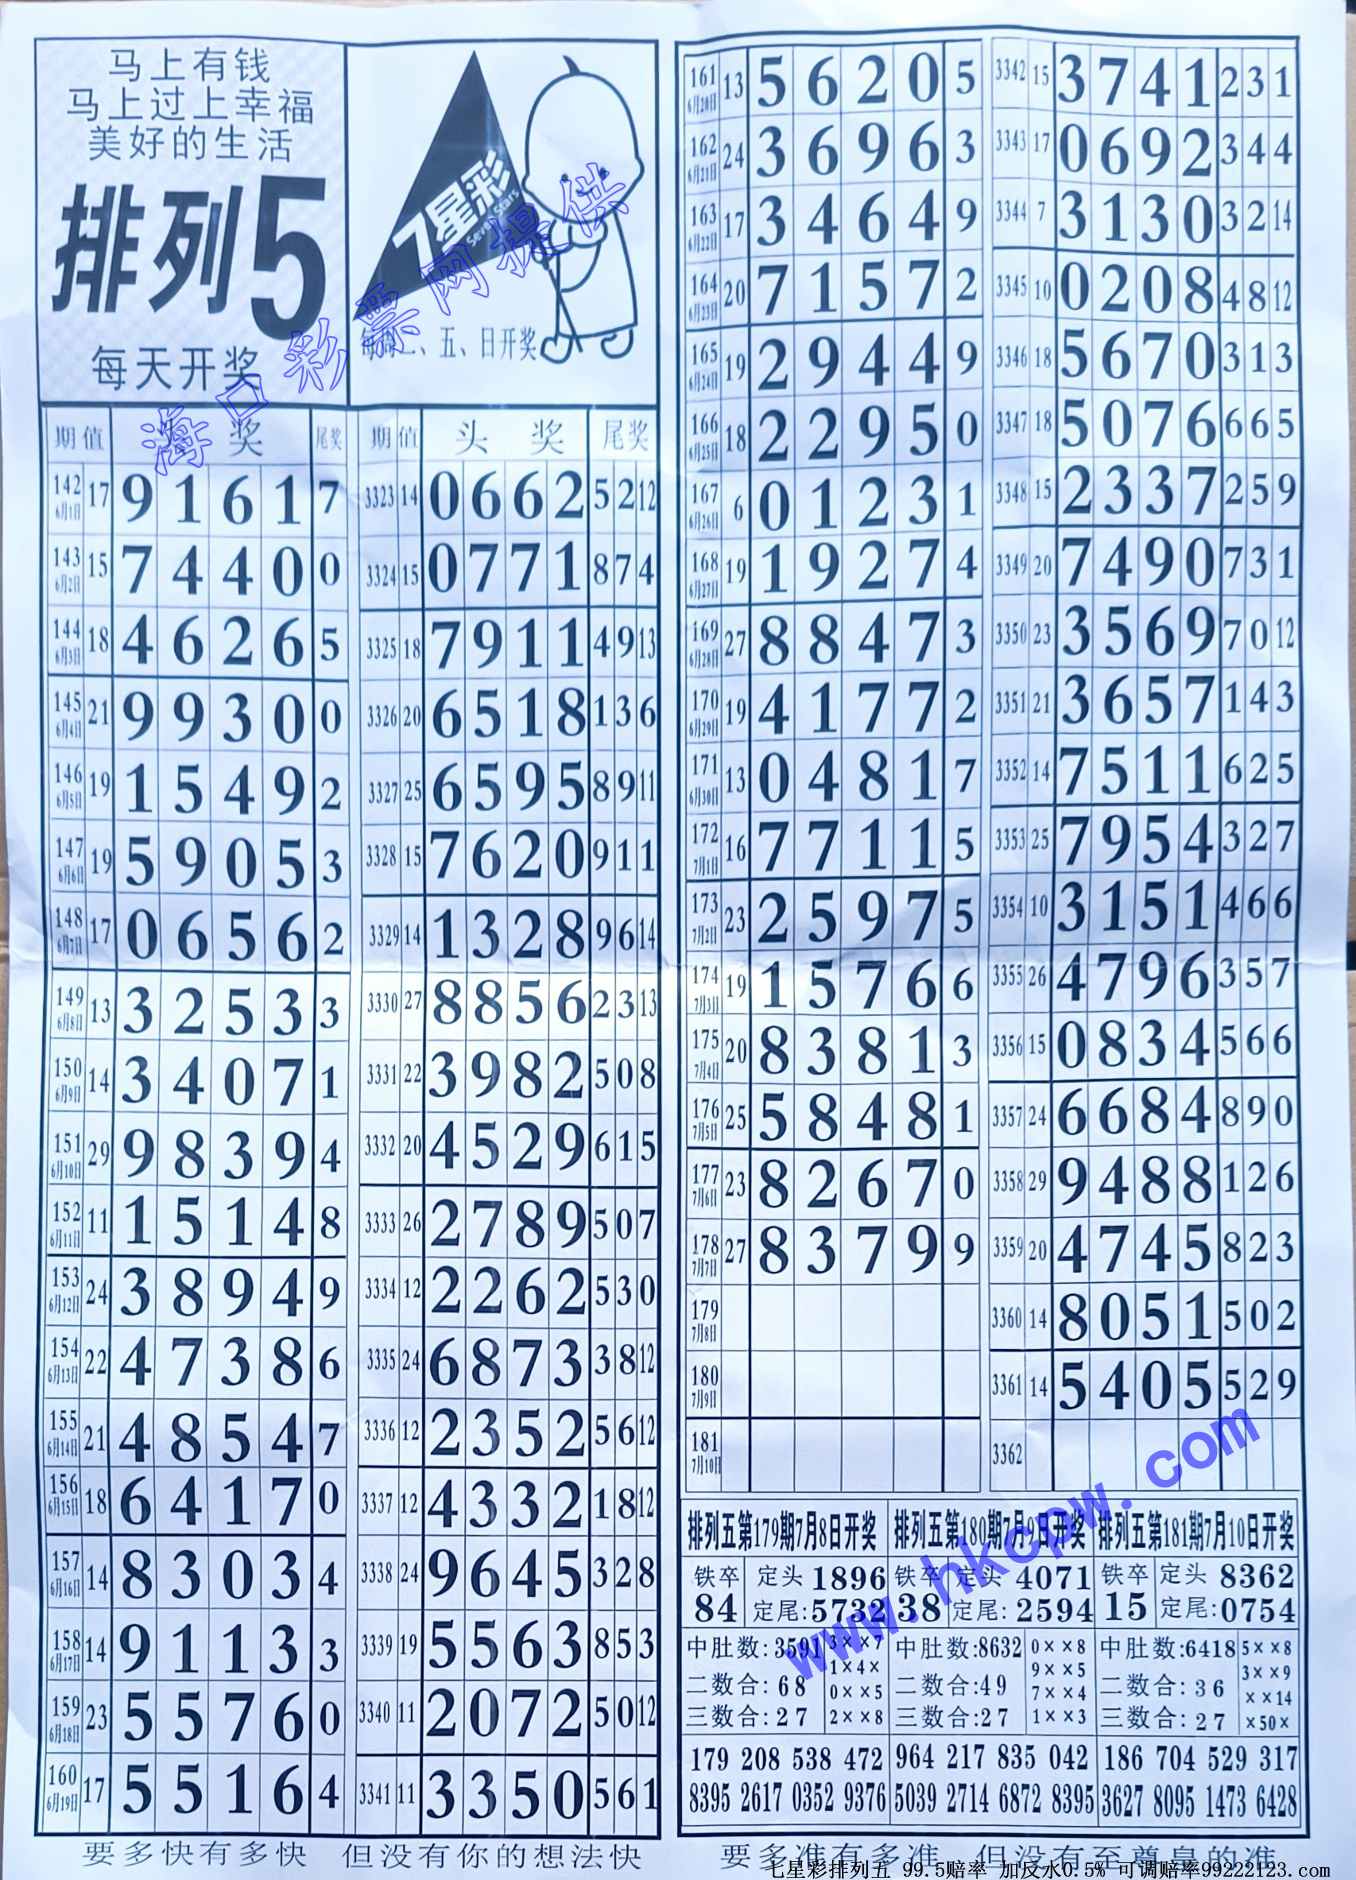 马上有钱
马上过上幸福
美好的生活
排列5
每天开奖
7星彩
Seven Stars
每周二、五、日开奖
海口彩票网提供
期 值 奖 尾奖
142 6月1日 17 9 1 6 1 7
143 6月2日 15 7 4 4 0 0
144 6月3日 18 4 6 2 6 5
145 6月4日 21 9 9 3 0 0
146 6月5日 19 1 5 4 9 2
147 6月6日 19 5 9 0 5 3
148 6月7日 17 0 6 5 6 2
149 6月8日 13 3 2 5 3 3
150 6月9日 14 3 4 0 7 1
151 6月10日 29 9 8 3 9 4
152 6月11日 11 1 5 1 4 8
153 6月12日 24 3 8 9 4 9
154 6月13日 22 4 7 3 8 6
155 6月14日 21 4 8 5 4 7
156 6月15日 18 6 4 1 7 0
157 6月16日 14 8 3 0 3 4
158 6月17日 14 9 1 1 3 3
159 6月18日 23 5 5 7 6 0
160 6月19日 17 5 5 1 6 4
期 值 头 奖 尾奖
3323 14 0 6 6 2 5 2 12
3324 15 0 7 7 1 8 7 4
3325 18 7 9 1 1 4 9 13
3326 20 6 5 1 8 1 3 6
3327 25 6 5 9 5 8 9 11
3328 15 7 6 2 0 9 1 1
3329 14 1 3 2 8 9 6 14
3330 27 8 8 5 6 2 3 13
3331 22 3 9 8 2 5 0 8
3332 20 4 5 2 9 6 1 5
3333 26 2 7 8 9 5 0 7
3334 12 2 2 6 2 5 3 0
3335 24 6 8 7 3 3 8 12
3336 12 2 3 5 2 5 6 12
3337 12 4 3 3 2 1 8 12
3338 24 9 6 4 5 3 2 8
3339 19 5 5 6 3 8 5 3
3340 11 2 0 7 2 5 0 12
3341 11 3 3 5 0 5 6 1
要多快有多快 但没有你的想法快
161 6月20日 13 5 6 2 0 5
162 6月21日 24 3 6 9 6 3
163 6月22日 17 3 4 6 4 9
164 6月23日 20 7 1 5 7 2
165 6月24日 19 2 9 4 4 9
166 6月25日 18 2 2 9 5 0
167 6月26日 6 0 1 2 3 1
168 6月27日 19 1 9 2 7 4
169 6月28日 27 8 8 4 7 3
170 6月29日 19 4 1 7 7 2
171 6月30日 13 0 4 8 1 7
172 7月1日 16 7 7 1 1 5
173 7月2日 23 2 5 9 7 5
174 7月3日 19 1 5 7 6 6
175 7月4日 20 8 3 8 1 3
176 7月5日 25 5 8 4 8 1
177 7月6日 23 8 2 6 7 0
178 7月7日 27 8 3 7 9 9
179 7月8日
180 7月9日
181 7月10日
3342 15 3 7 4 1 2 3 1
3343 17 0 6 9 2 3 4 4
3344 7 3 1 3 0 3 2 14
3345 10 0 2 0 8 4 8 12
3346 18 5 6 7 0 3 1 3
3347 18 5 0 7 6 6 6 5
3348 15 2 3 3 7 2 5 9
3349 20 7 4 9 0 7 3 1
3350 23 3 5 6 9 7 0 12
3351 21 3 6 5 7 1 4 3
3352 14 7 5 1 1 6 2 5
3353 25 7 9 5 4 3 2 7
3354 10 3 1 5 1 4 6 6
3355 26 4 7 9 6 3 5 7
3356 15 0 8 3 4 5 6 6
3357 24 6 6 8 4 8 9 0
3358 29 9 4 8 8 1 2 6
3359 20 4 7 4 5 8 2 3
3360 14 8 0 5 1 5 0 2
3361 14 5 4 0 5 5 2 9
3362
www.hkcpw.com
排列五第179期7月8日开奖
铁卒 定头 1896
84 定尾:5732
中肚数:3591 3××7
1×4×
二数合:68 0××5
三数合:27 2××8
179 208 538 472
8395 2617 0352 9376
排列五第180期7月9日开奖
铁卒 定头 4071
38 定尾:2594
中肚数:8632 0××8
9××5
二数合:49 7××4
三数合:27 1××3
964 217 835 042
5039 2714 6872 8395
排列五第181期7月10日开奖
铁卒 定头 8362
15 定尾:0754
中肚数:6418 5××8
3××9
二数合:36 ××14
三数合:27 ×50×
186 704 529 317
3627 8095 1473 6428
要多准有多准 但没有至尊皇的准
七星彩排列五 99.5赔率 加反水0.5% 可调赔率99222123.com